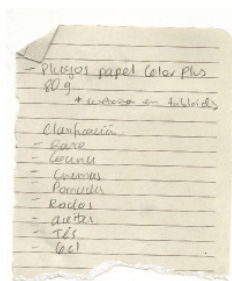 - Pliegos papel Color Plus
80 g
Clasificación.
- Base
- Cremas
- Pomadas
- Rodos
- aceites
- Tés
- Gel